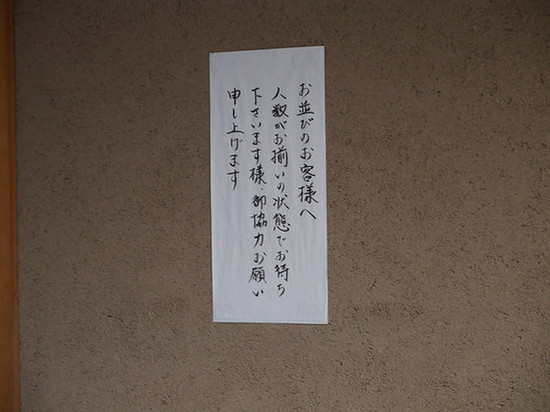 お並びのお客様へ
人数がお揃いの状態でお待ち
下さいます様、御協力お願い
申し上げます